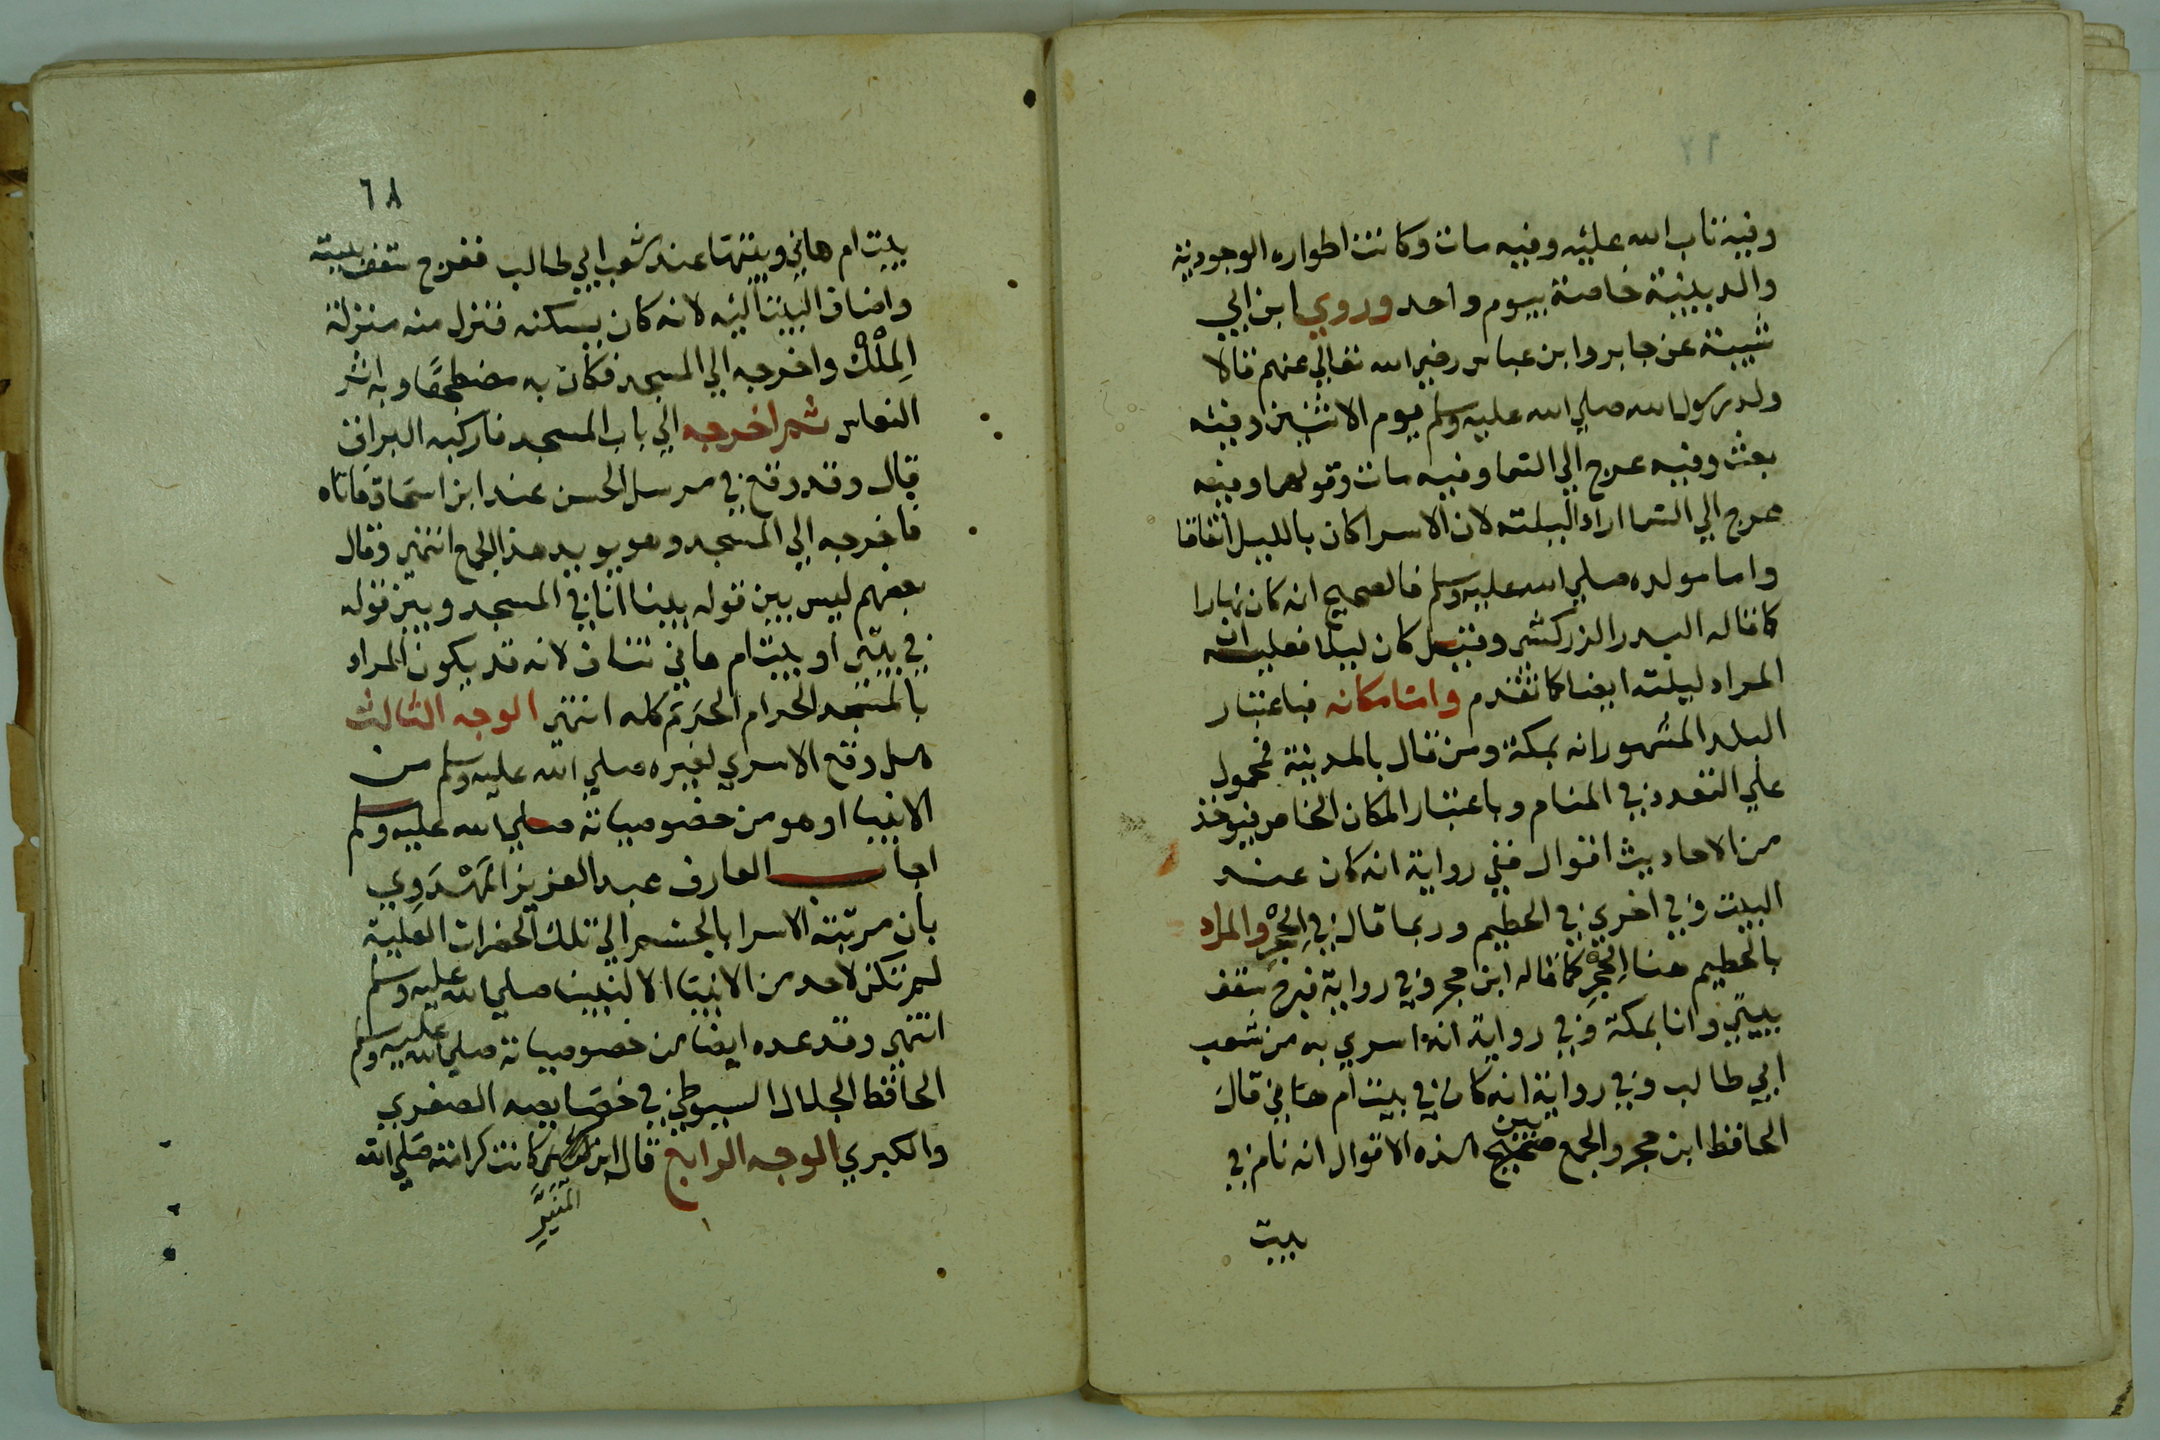 وفيه تاب الله عليه وفيه مات وكانت اطواره الوجودية
والدينية خاصة بيوم واحد وروي ابن ابي
شيبة عن جابر وابن عباس رضي الله تعالي عنهم قالا
ولد رسول الله صلي الله عليه وسلم يوم الاثنين وفيه
بعث وفيه عرج الي السما وفيه مات وقولهما وفيه
عرج الي السما اراد ليلته لان الاسرا كان بالليل اتفاقا
واما مولده صلي الله عليه وسلم فالصحيح انه كان نهارا
كما قاله البدر الزركشي وقيل كان ليلا فعليه ان
المراد ليلته ايضا كما تقدم واما مكانه فباعتبار
البلد المشهور انه بمكة ومن قال بالمدينة فمحمول
علي التعدد في المنام وباعتبار المكان الخاص فيوخذ
من الاحاديث اقوال ففي رواية انه كان عند
البيت وفي اخري في الحطيم وربما قال في الحِجْرِ والمراد
بالحطيم هنا الحِجْرِ كما قاله ابن حجر وفي رواية فرج سقف
بيتي وانا بمكة وفي رواية انه اسري به من شعب
ابي طالب وفي رواية انه كان في بيت ام هاني قال
الحافظ ابن حجر والجمع بين هذه الاقوال انه نام في
بيت
٦٨
بيت ام هاني وبيتها عند شعب ابي طالب ففرج سقف بيته
واضاف البيت اليه لانه كان يسكنه فنزل منه منزلة
المِلْك واخرجه الي المسجد فكان به مضطجعا وبه اثر
النعاس ثم اخرجه الي باب المسجد فاركبه البراق
قال وقد وقع في مرسل الحسن عند ابن اسحاق فاتاه
فاخرجه الي المسجد وهو يويد هذا الجمع انتهي وقال
بعضهم ليس بين قوله بينا انا في المسجد وبين قوله
في بيتي او بيت ام هاني تناف لانه قد يكون المراد
بالمسجد الحرام الحرم كله انتهي الوجه الثالث
هل وقع الاسري لغيره صلي الله عليه وسلم من
الانبيا او هو من خصوصياته صلي الله عليه وسلم
اجاب العارف عبد العزيز المَهْدَوِي
بان مرتبة الاسرا بالجسم الي تلك الحضرات العلية
لم تكن لاحد من الانبيا الا لنبينا صلي الله عليه وسلم
انتهي وقد عده ايضا من خصوصياته صلي الله عليه وسلم
الحافظ الجلال السيوطي في خصايصه الصغري
والكبري الوجه الرابع قال ابن المنير كانت كرامته صلي الله
المُنَيِّرِ